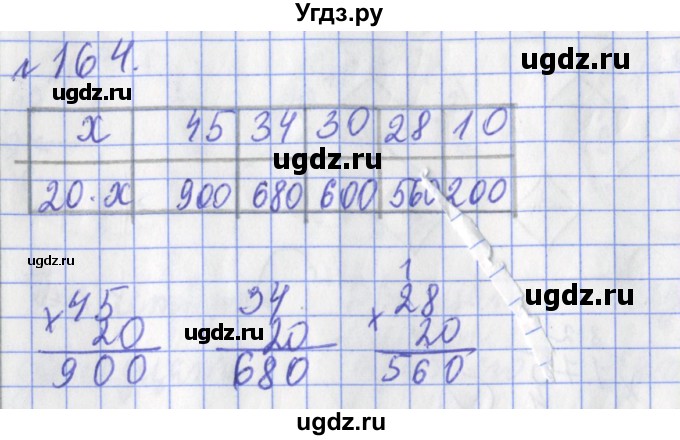 Угдз.ру
№ 164.
ugdz.ru
ugdz.ru
x 45 34 30 28 10
ugdz.ru
20·x 900 680 600 560 200
ugdz.ru
ugdz.ru
1
× 45 34 × 28
20 20 20
ugdz.ru
ugdz.ru
900 680 560
ugdz.ru